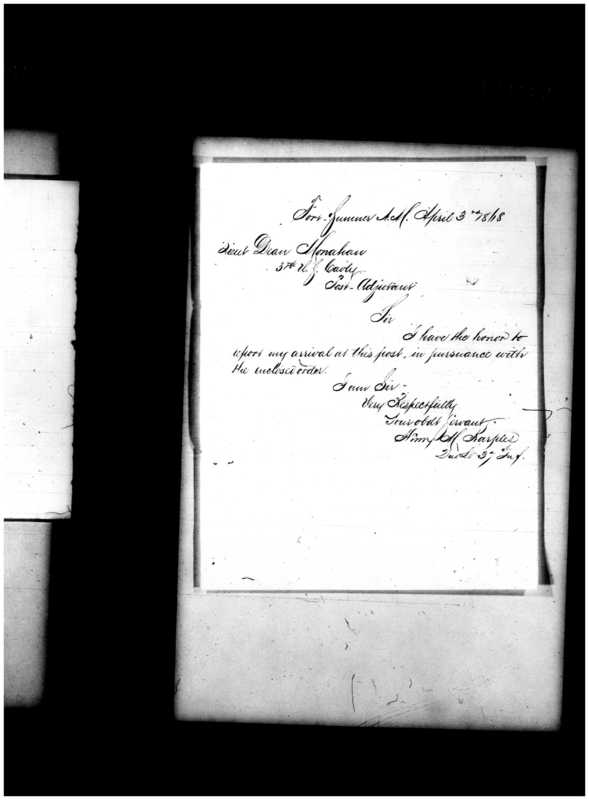 Fort Sumner N.M. April 3rd 1868
Lieut Dean Monahan
3rd U.S. Cavly
Post-Adjutant
Sir
I have the honor to
report my arrival at this post, in pursuance with
the enclosed order.
I am Sir-
Very Respectfully
Your obdt Servant.
Henry M. Karples
2nd Lt 37 Inf.